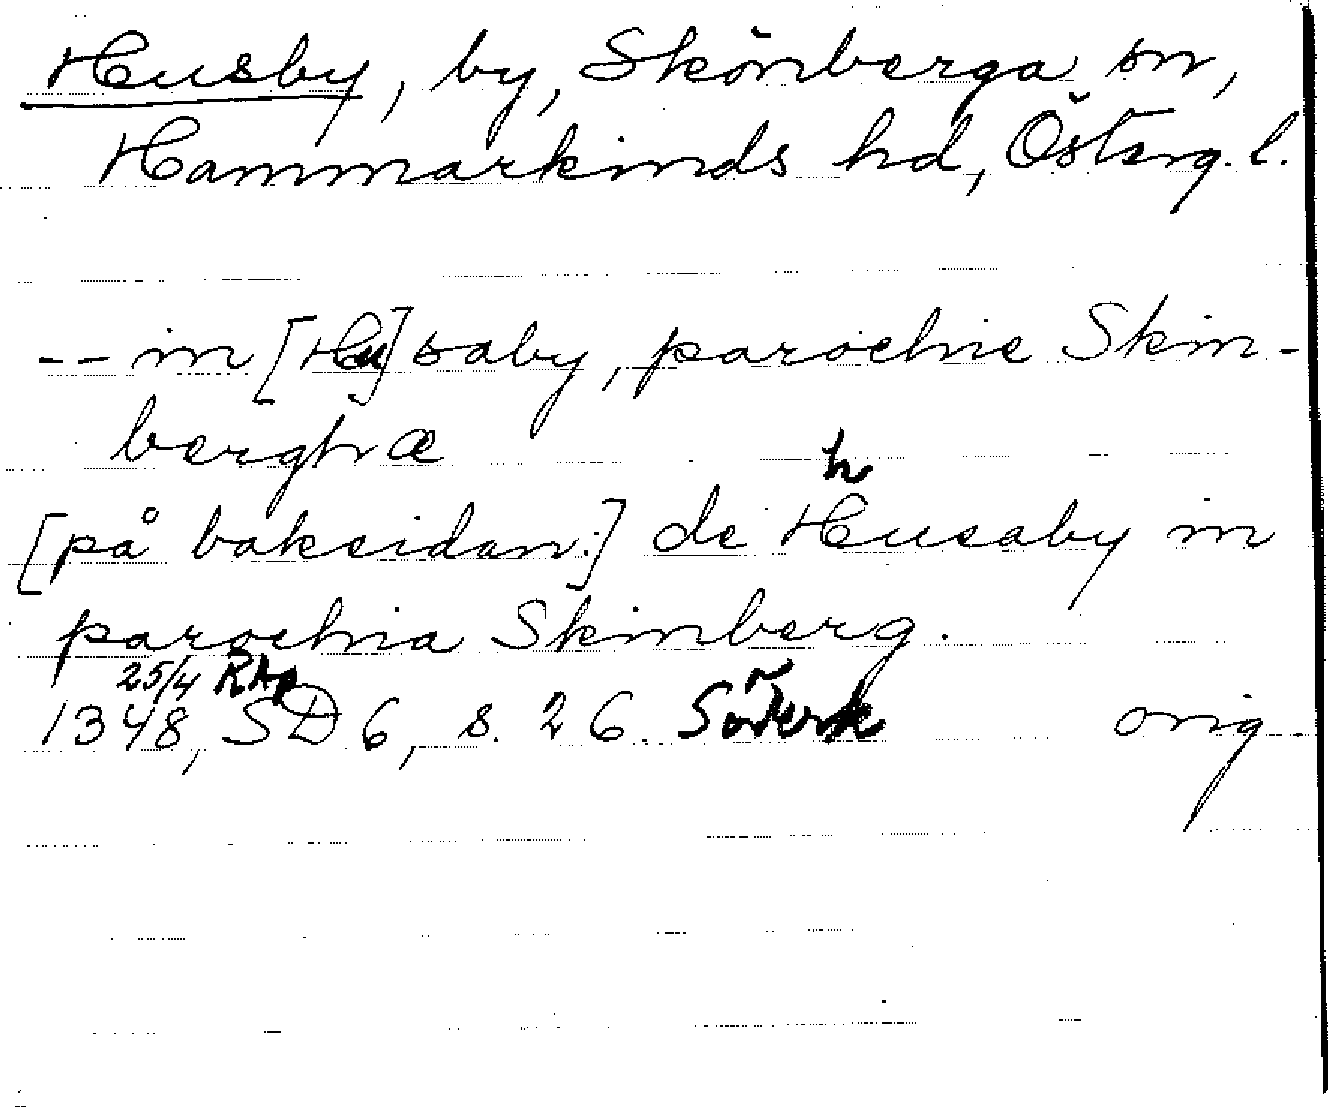 Husby, by, Skönberga sn,
Hammarkinds hd, Österg. l.
-- in [Hu]saby, parochie Skin-
berghæ
h
[på baksidan:] de Husaby in
parochia Skinberg.
25/4 RAp
1348, SD 6, s. 26. Söderk orig